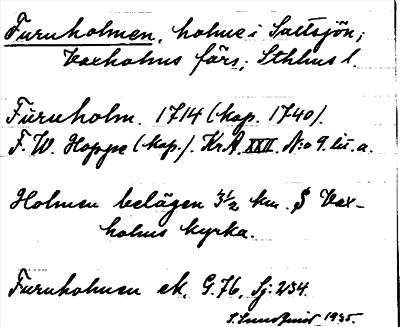 Furuholmen, holme i Saltsjön;
Vaxholms förs; Sthlms l.
Furuholm. 1714 (kop. 1740).
F. W. Hoppe (kop.). Kr A. XXII. N:o 9. lit. a.
Holmen belägen 3½ km. S Vax-
holms kyrka.
Furuholmen ek. G. 76, Sj: 234.
1935.